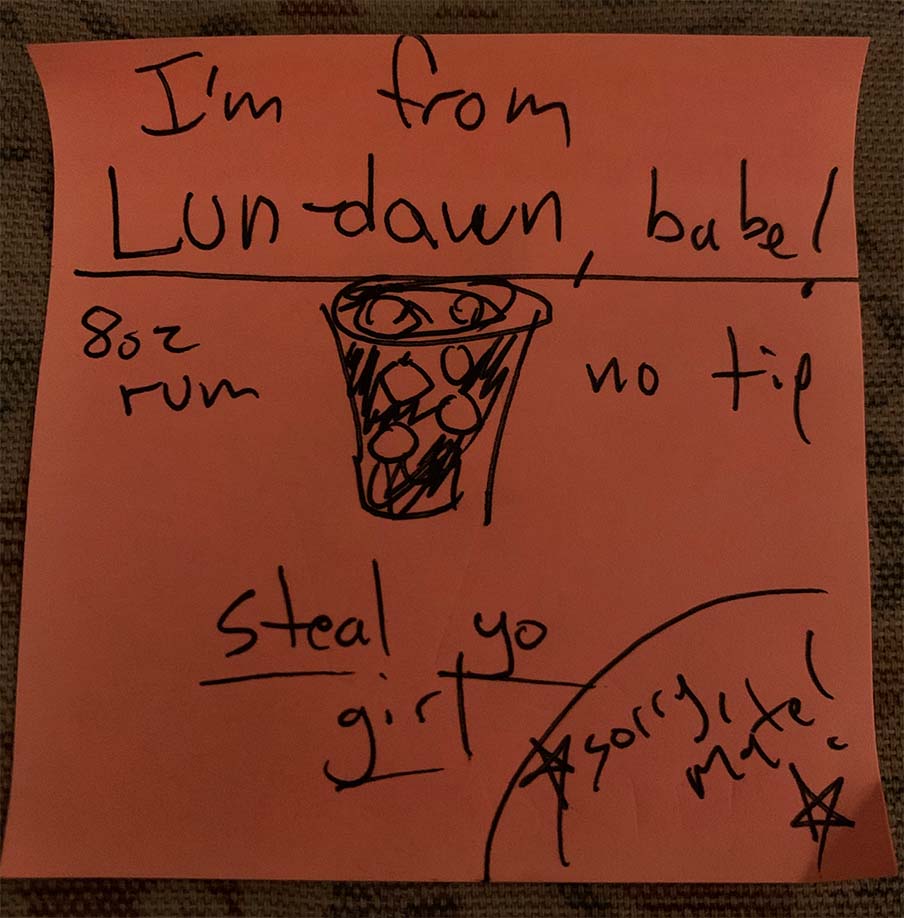 I'm from
Lun-dawn, babe!
8oz
rum
no tip
steal yo
girl
sorry,
mate!